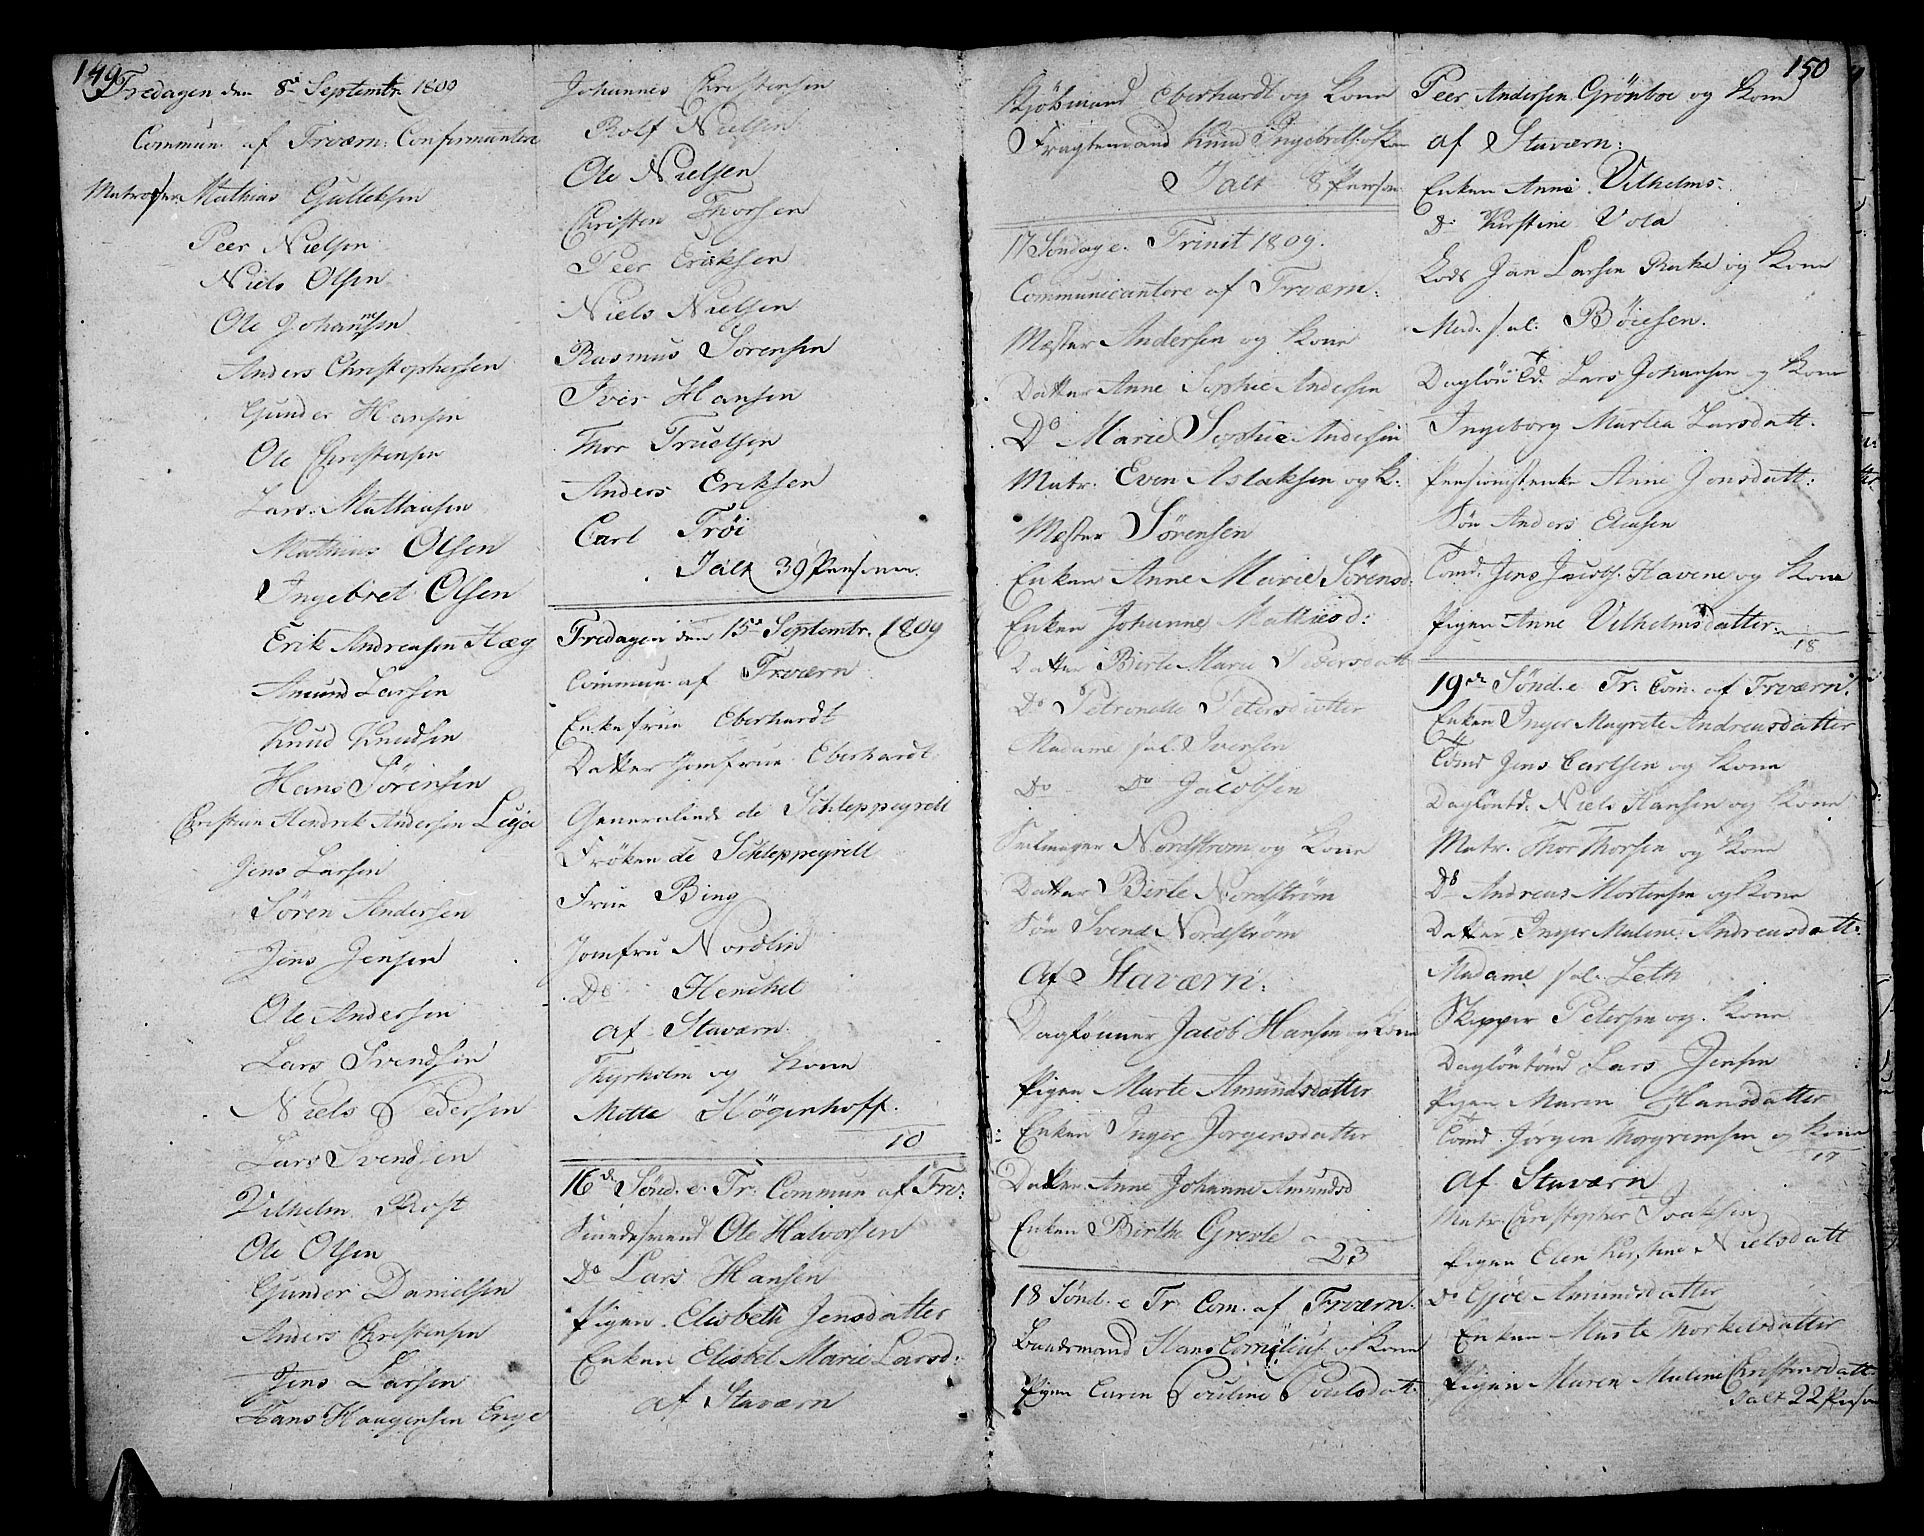 149
Fredagen den 8de Septembr. 1809
Commun. af Frværn: Confirmantere
Matroser Mathias Gulleksen
Peer Nielsen
Niels Olsen
Ole Johannsen
Anders Christophersen
Gunder Hansen
Ole Christensen
Lars Mathiasen
Mathias Olsen
Ingebret Olsen
Erik Andreasen Hæg
Amund Larsen
Knud Knudsen
Hans Sörensen
Christian Hendrik Andersen
Jens Larsen
Sören Andersen
Jens Jensen
Ole Andersen
Lars Svendsen
Niels Pedersen
Lars Svendsen
Vilhelm Rost
Ole Olsen
Gunder Danielsen
Anders Christensen
Jens Larsen
Hans Haagensen Enge
Johannes Christensen
Rolf Nielsen
Ole Nielsen
Christen Thorsen
Peer Eriksen
Niels Nielsen
Rasmus Sörensen
Iver Hansen
Thor Truelsen
Anders Eriksen
Carl Tröi
Ialt 39 Personer.
Fredagen den 15de Septembr. 1809
Commun. af Frværn
Enkefrue Eberhardt
Datter Jomfrue Eberhardt
Generalinde de Schleppegrell
Fröken de Schleppegrell
Frue Bing
Jomfru Nordlin
Do Henckel
af Staværn.
Thyrholm og Kone
Mette Högenhoff.
10
16de Sönd. e. Tr. Commun af Frv:
Ole Halvorsen
Do Lars Hansen
Pigen Elisbeth Jensdatter
Enken Elisbet Marie Larsd:
af Staværn
150
Kjöbmand Eberhardt og Kone
Fragtemand Knud Ingebretts. og Kone
Ialt 8 Person
17 Söndag e. Trinit 1809.
Communicantere af Frværn:
Mæster Andersen og Kone
Datter Anne Sophie Andersen
Do Marie Sophie Andersen
Matr. Even Aslaksen og K.
Mæster Sörensen
Enken Anne Marie Sörensd:
Enken Johanne Mathiesd:
Datter Birte Marie Pedersdatt
Do Petronelle Petersdatter
Madame sal. Iversen
Do Do Jacobsen
Seilmager Nordström og Kone
Datter Birte Nordström
Sön Svend Nordström
Af Staværn:
Daglönner Jacob Hansen og Kone
Pigen Marte Amundsdatter
Enken Inger Jörgensdatter
Datter Anne Johanne Amundsd
Enken Birthe Grevle
23
18 Sönd. e Tr. Com. af Frværn.
Hans Cornelius. og Kone
Pigen Caren Pouline Poulsdatt.
Peer Andersen Grönboe og Kone
af Staværn:
Enken Anne Vilhelms:
Do Kirstine Vola
Lods Jan Larsen Rake og Kone
Mad. sal. Böiesen.
Lars Johansen og Kone
Ingeborg Martea Larsdatt.
Pensionistenke Anne Jonsdatt:
Sön Anders Eliasen
Tömd. Jens Jacobs. Havene og Kone
Pigen Anne Vilhelmsdatter
18
19de Sönd. e Tr: Com. af Frværn.
Enken Inger Magrete Andreasdatter
Tömd Jens Carlsen og Kone
Daglöntd. Niels Hansen og Kone
Matr. Thor Thorsen og Kone
Do Andreas Mortensen og Kone
Datter Inger Maline Andreasdatt.
Madame sal. Leth
Skipper Petersen og Kone
Lars Jensen
Pigen Maren Hansdatter
Tömd. Jörgen Torgrimsen og Kone
17
Af Staværn
Matr Christopher Isaksen
Pigen Elen Kirstine Nielsdatt
Do Gjöe Amundsdatter
Enken Marte Thorkelsdatter
Pigen Maren Maline Christensdatt.
Ialt 22 Person